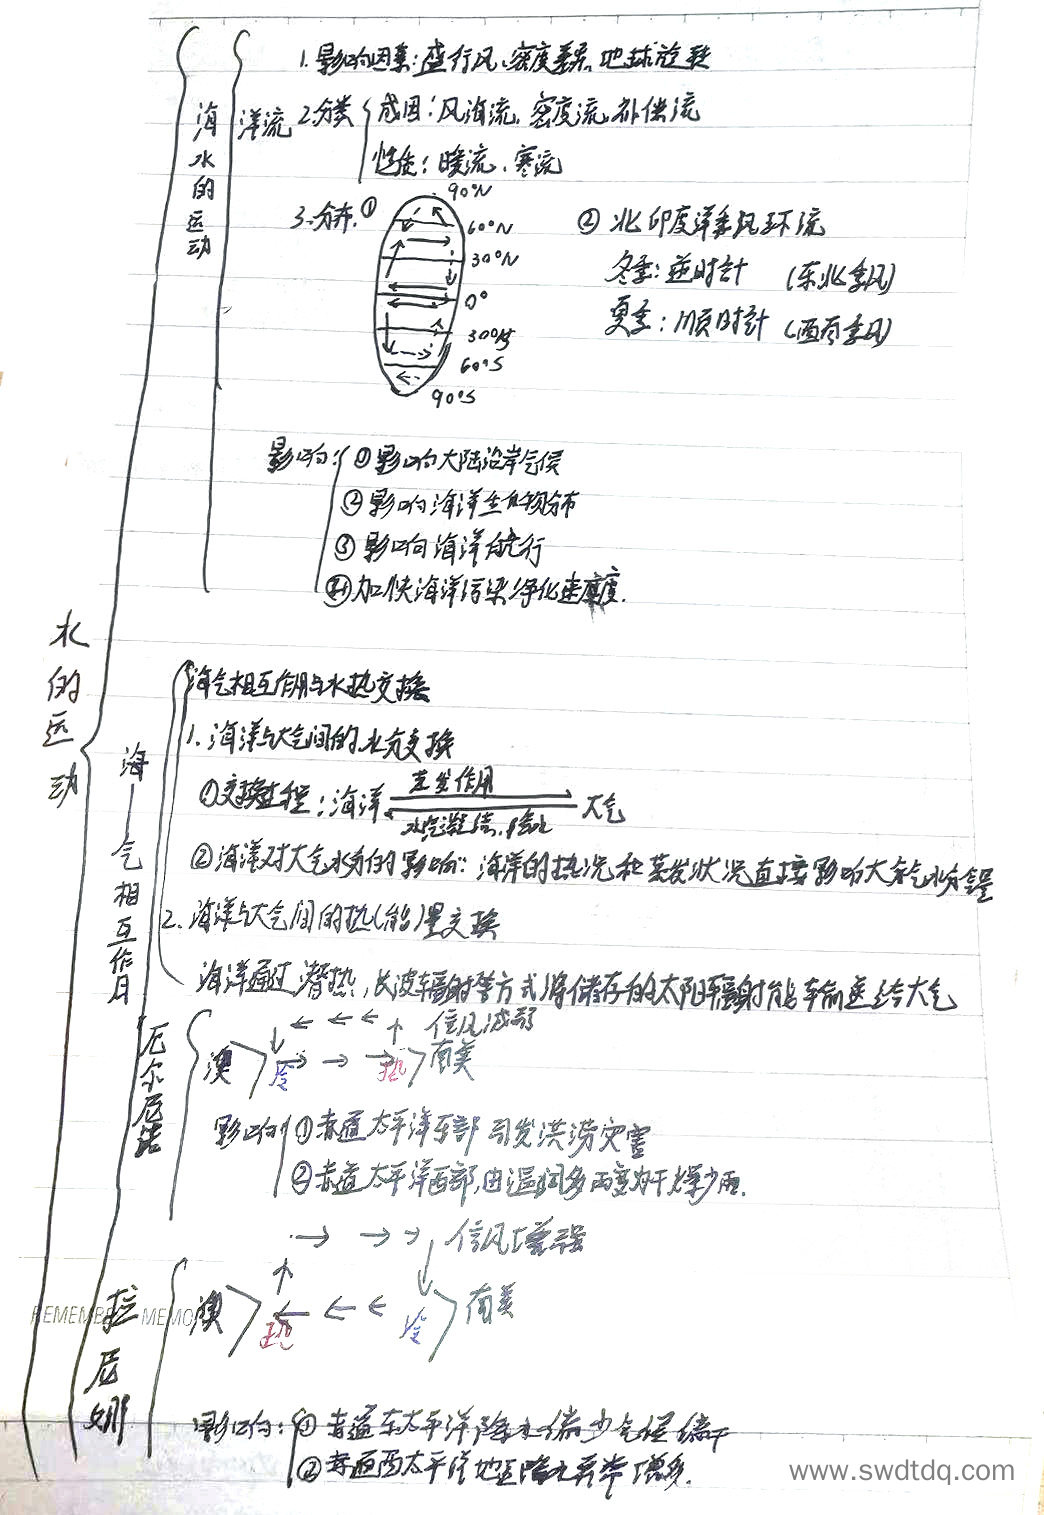 水的运动
海水的运动
洋流
1.影响因素:盛行风、密度差异、地球旋转
2.分类 成因:风海流、密度流、补偿流
性质:暖流、寒流
3.分布.①
90°N
60°N
30°N
0°
30°S
60°S
90°S
② 北印度洋季风环流
冬季:逆时针 (东北季风)
夏季:顺时针 (西南季风)
影响:①影响大陆沿岸气候
②影响海洋生物分布
③影响海洋航行
④加快海洋污染净化速度.
海—气相互作用
海气相互作用与水热交换
1.海洋与大气间的水分交换
①交换过程:海洋 蒸发作用 大气
水汽凝结、降水
②海洋对大气水分的影响:海洋的热况和蒸发状况直接影响大气水分含量
2.海洋与大气间的热(能)量交换
海洋通过潜热,长波辐射等方式将储存的太阳辐射能输送给大气
厄尔尼诺
信风减弱
澳 冷 热 南美
影响 ①赤道太平洋东部 引发洪涝灾害
②赤道太平洋西部,由温润多雨变为干燥少雨.
拉尼娜
信风增强
澳 热 冷 南美
影响:①赤道东太平洋降水偏少气候偏干
②赤道西太平洋地区降水异常增多.
REMEMBE MEMO
www.swdtdq.com